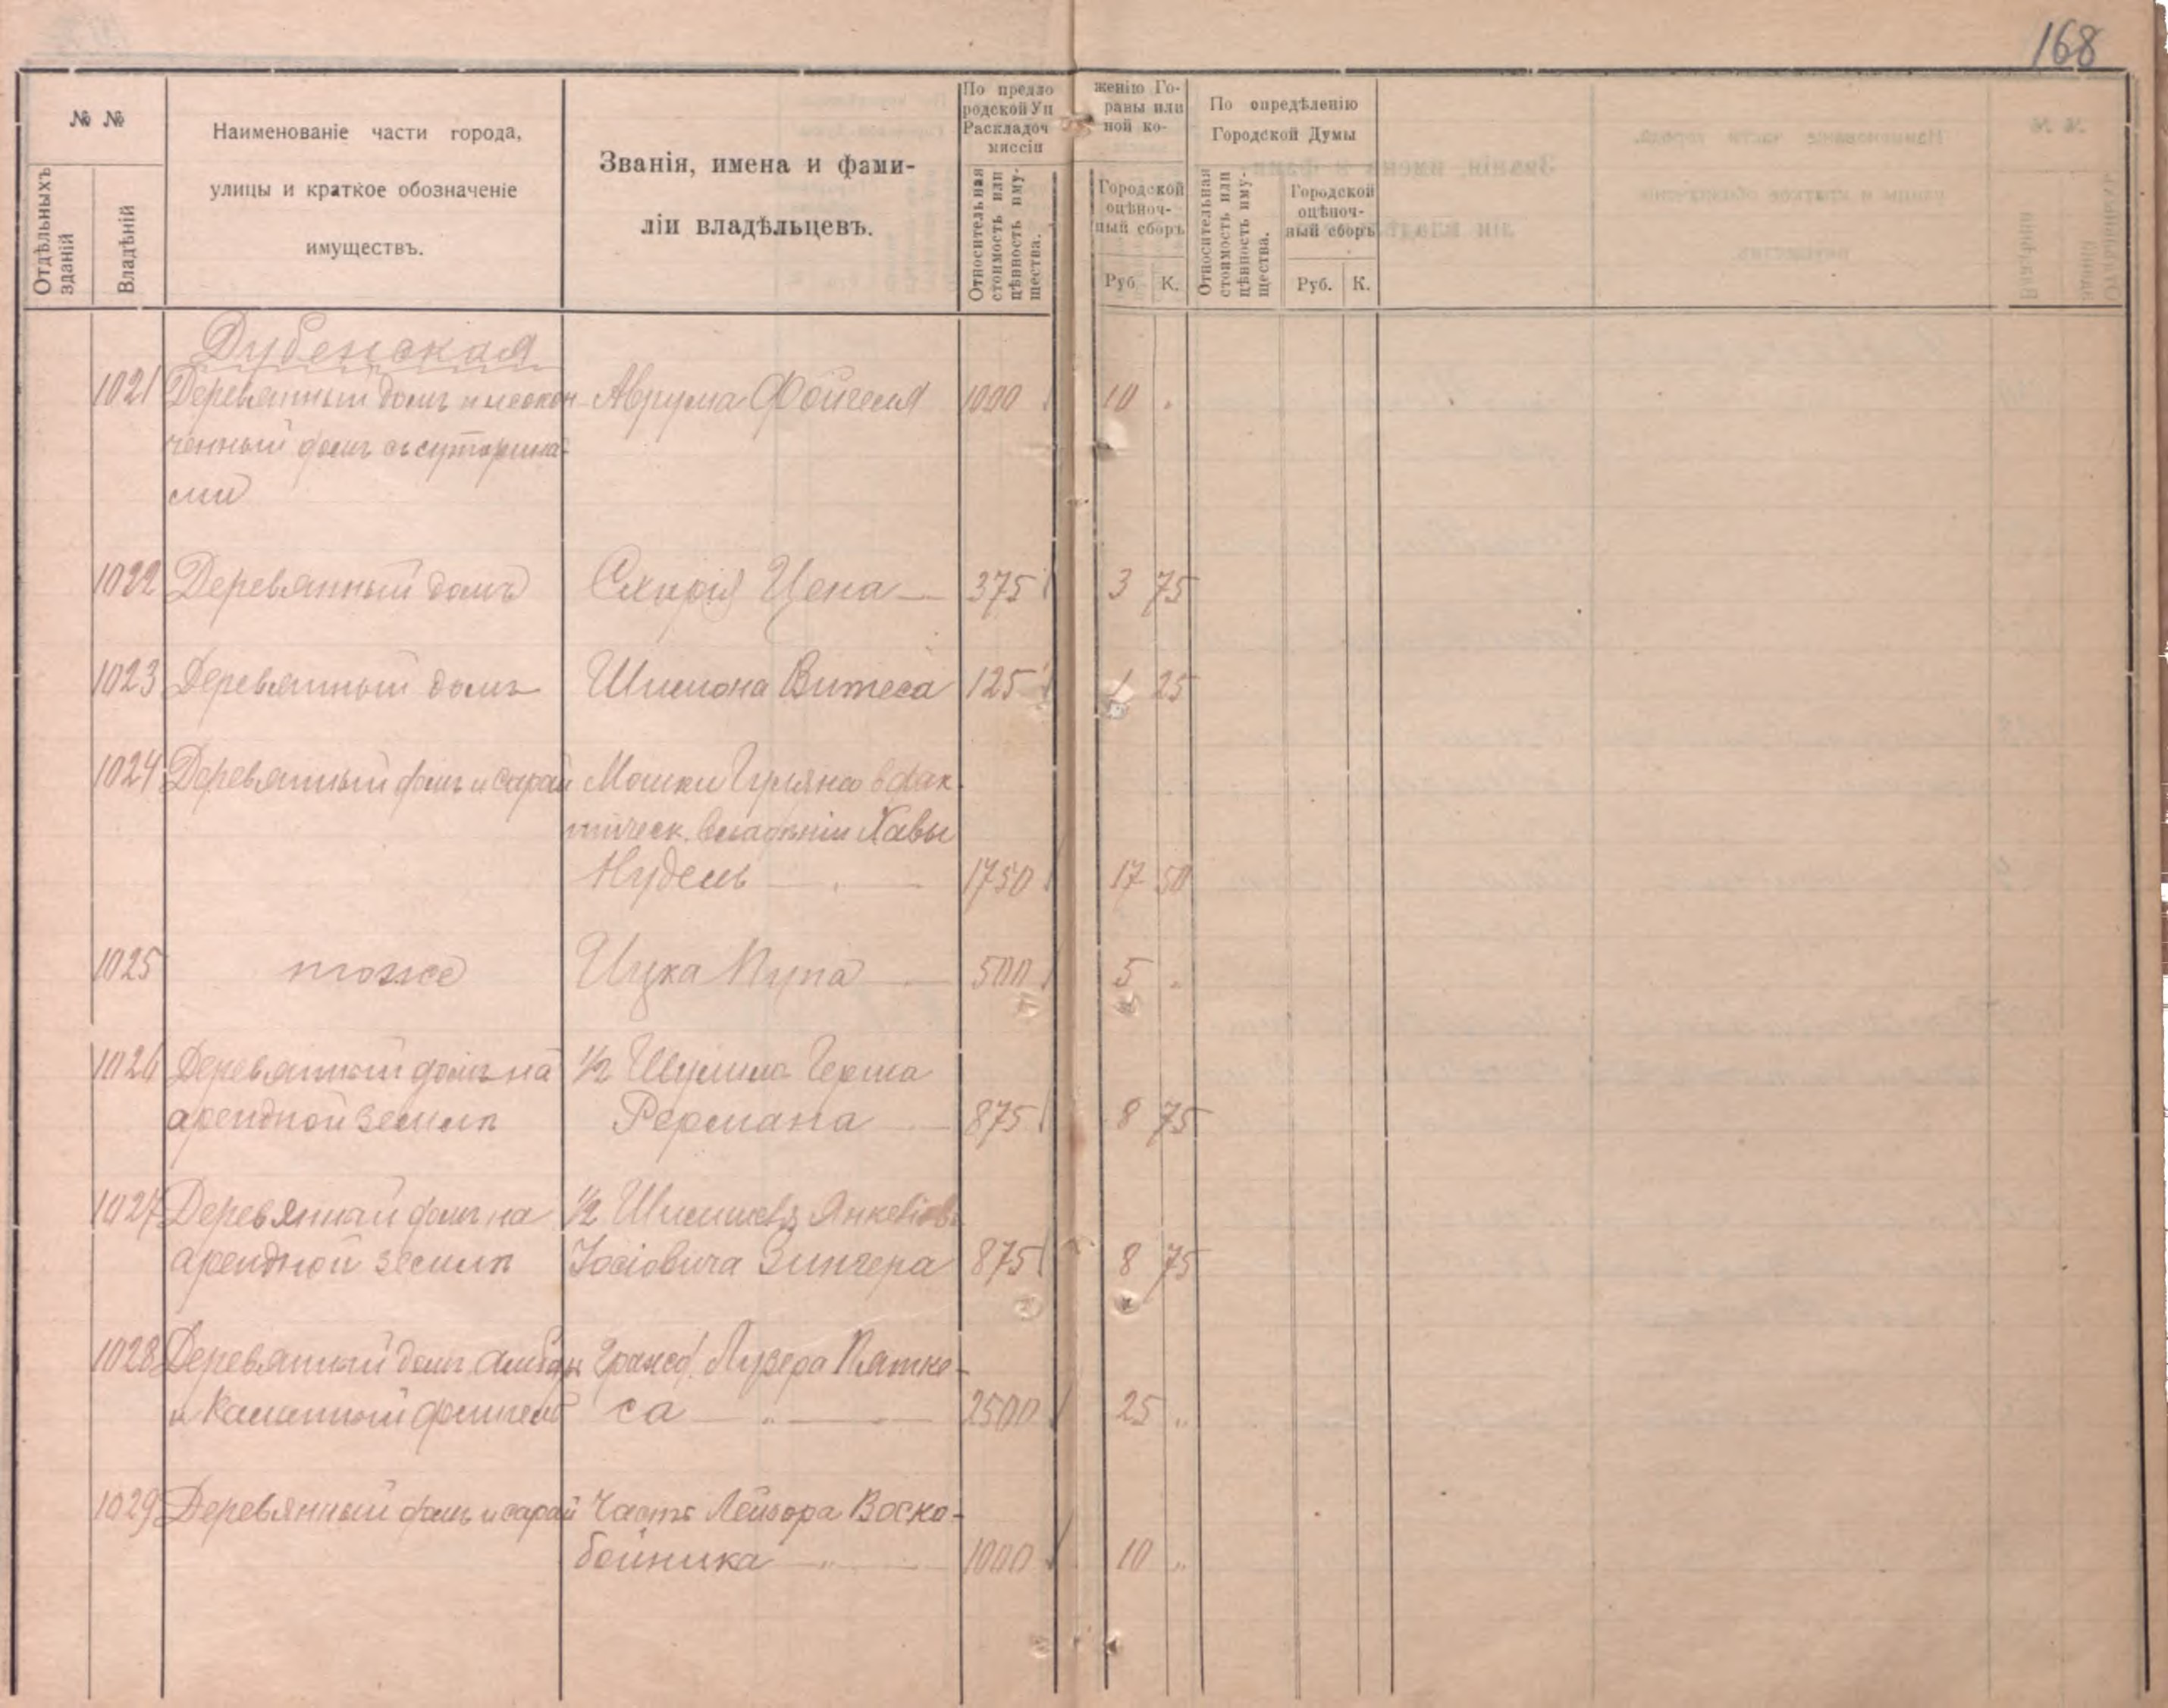 168
№ №
Отдѣльныхъ зданій
Владѣній
Наименованіе части города,
улицы и краткое обозначеніе
имуществъ.
Званія, имена и фами-
ліи владѣльцевъ.
По предло
родской Уп
Раскладоч
миссіи
женію Го-
равы или
ной ко-
Относительная
стоимость или
цѣнность иму-
щества.
Городской
оцѣноч-
ный сборъ
Руб. К.
По опредѣленію
Городской Думы
Относительная
стоимость или
цѣнность иму-
щества.
Городской
оцѣноч-
ный сборъ
Руб. К.
Дубенская
1021 Деревянный домъ и неокон Аврума 1000 10 "
ченный домъ съ сутерина-
ми
1022 Деревянный домъ Цена 375 3 75
1023 Деревянный домъ Шимона Витеса 125 1 25
1024 Деревянный домъ и сарай Мошки в фак
тическ. владѣніи Хавы
Нудель 1750 17 50
1025 тоже Ицка Пупа 500 5 "
1026 Деревянный домъ на 1/2 Шулима Герша
арендной землѣ Рермана 875 8 75
1027 Деревянный домъ на 1/2
арендной землѣ Іосіовича Зингера 875 8 75
1028 Деревянный домъ амбар Гражд. Лузера Пятке-
и каменный флигель са " 2500 25 "
1029 Деревянный домъ и сарай Часть Лейзора Воско-
бойника " 1000 10 "